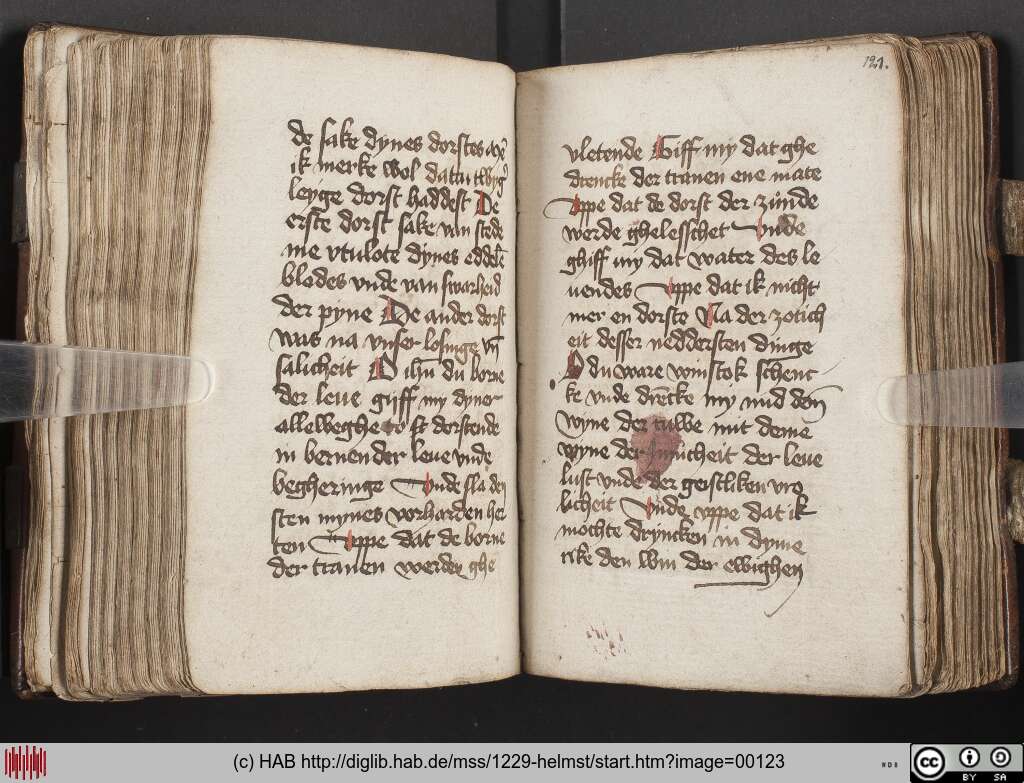 de sake dynes dorstes
ik merke wol datu twyg
leyge dorst haddest De
erste dorst sake van stede
me vtulote dynes eddelē
blodes vnde van swarheid
der pyne De ander dorst
was na vnser losinge vn̄
salicheit O ihū du borne
der leue gyff my dyner
alleweghe to st dorstende
in bernender leue vnde
begheringe Unde sla den
sten mynes vorharden her
ten Uppe dat de borne
der tranen werden ghe
121.
vletende Giff my dat ghe
drencke der tranen ene mate
Uppe dat de dorst der zunde
werde ghelesschet Unde
ghiff my dat water des le
uendes Uppe dat ik nicht
mer en dorste Na der zotich
eit desser neddersten dinge
O du ware winstok schenc
ke vnde drēcke my mid den
wyne der ruwe mit deme
wyne der Innicheit der leue
lust vnde der geistliken vro
licheit Unde vppe dat ik
mochte dryncken in dyme
rike den win der ewighen
(c) HAB http://diglib.hab.de/mss/1229-helmst/start.htm?image=00123
WDB
cc BY SA